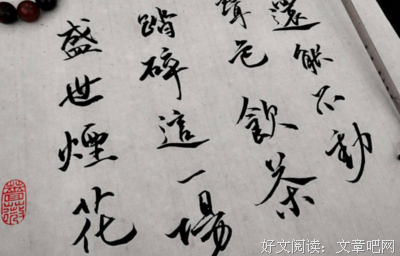 還能不動
聲色飲茶
踏碎這一場
盛世煙花
好文阅读：文章吧网